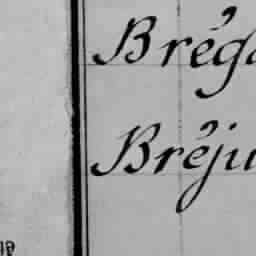 Bréga
Bréju